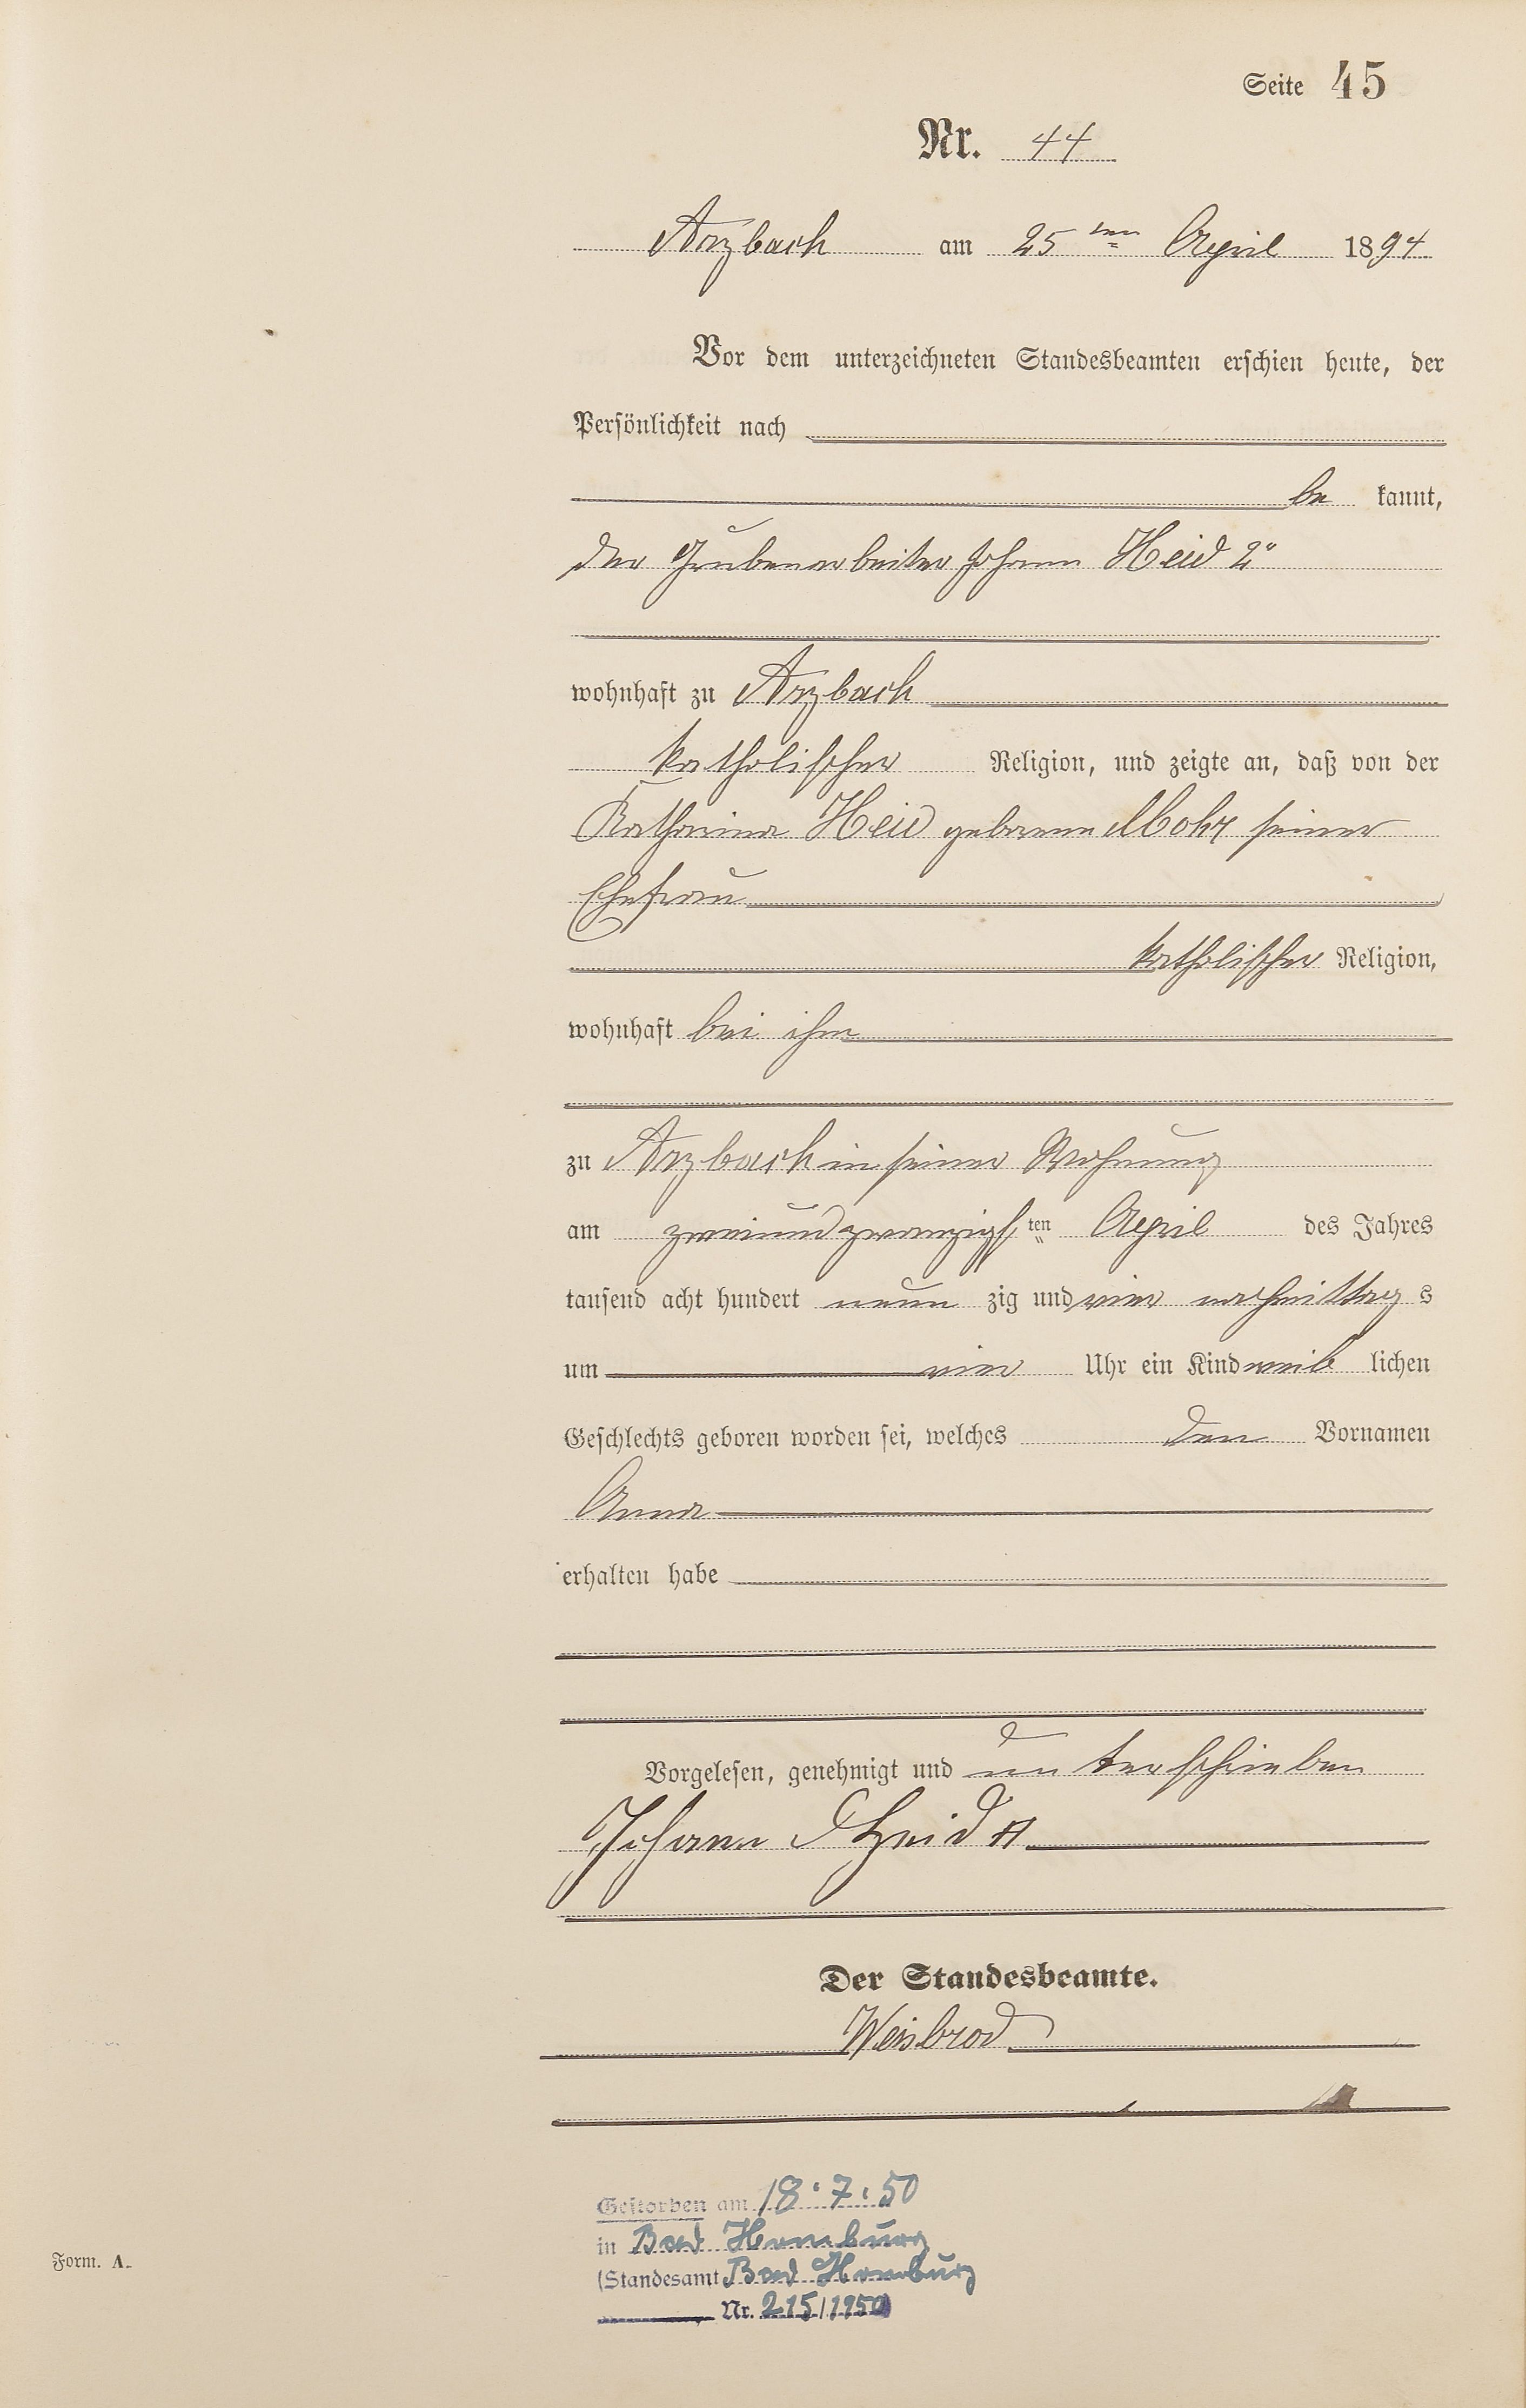 Seite 45
Nr. 44
Arzbach am 25ten April 1894
Vor dem unterzeichneten Standesbeamten erschien heute, der
Persönlichkeit nach
be kannt,
der Grubenarbeiter Johann Heid 2r
wohnhaft zu Arzbach
katholischer Religion, und zeigte an, daß von der
Katharina Heid geborene Mohr seiner
Ehefrau
katholischer Religion,
wohnhaft bei ihm
zu Arzbach in seiner Wohnung
am zweiundzwanzigsten April des Jahres
tausend acht hundert neun zig und vier nachmittag s
um vier Uhr ein Kind weib lichen
Geschlechts geboren worden sei, welches den Vornamen
Anna
erhalten habe
Vorgelesen, genehmigt und unterschrieben
Johann Heid II
Der Standesbeamte.
Weisbrod
Gestorben am 18.7.50
in Bad Homburg
(Standesamt Bad Homburg
Nr. 215/1950
Form. A.